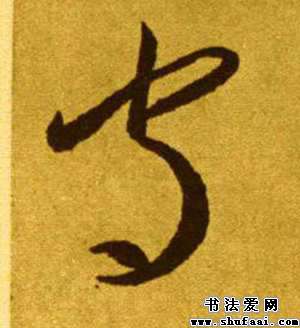 守
书法爱网
www.shufaai.com